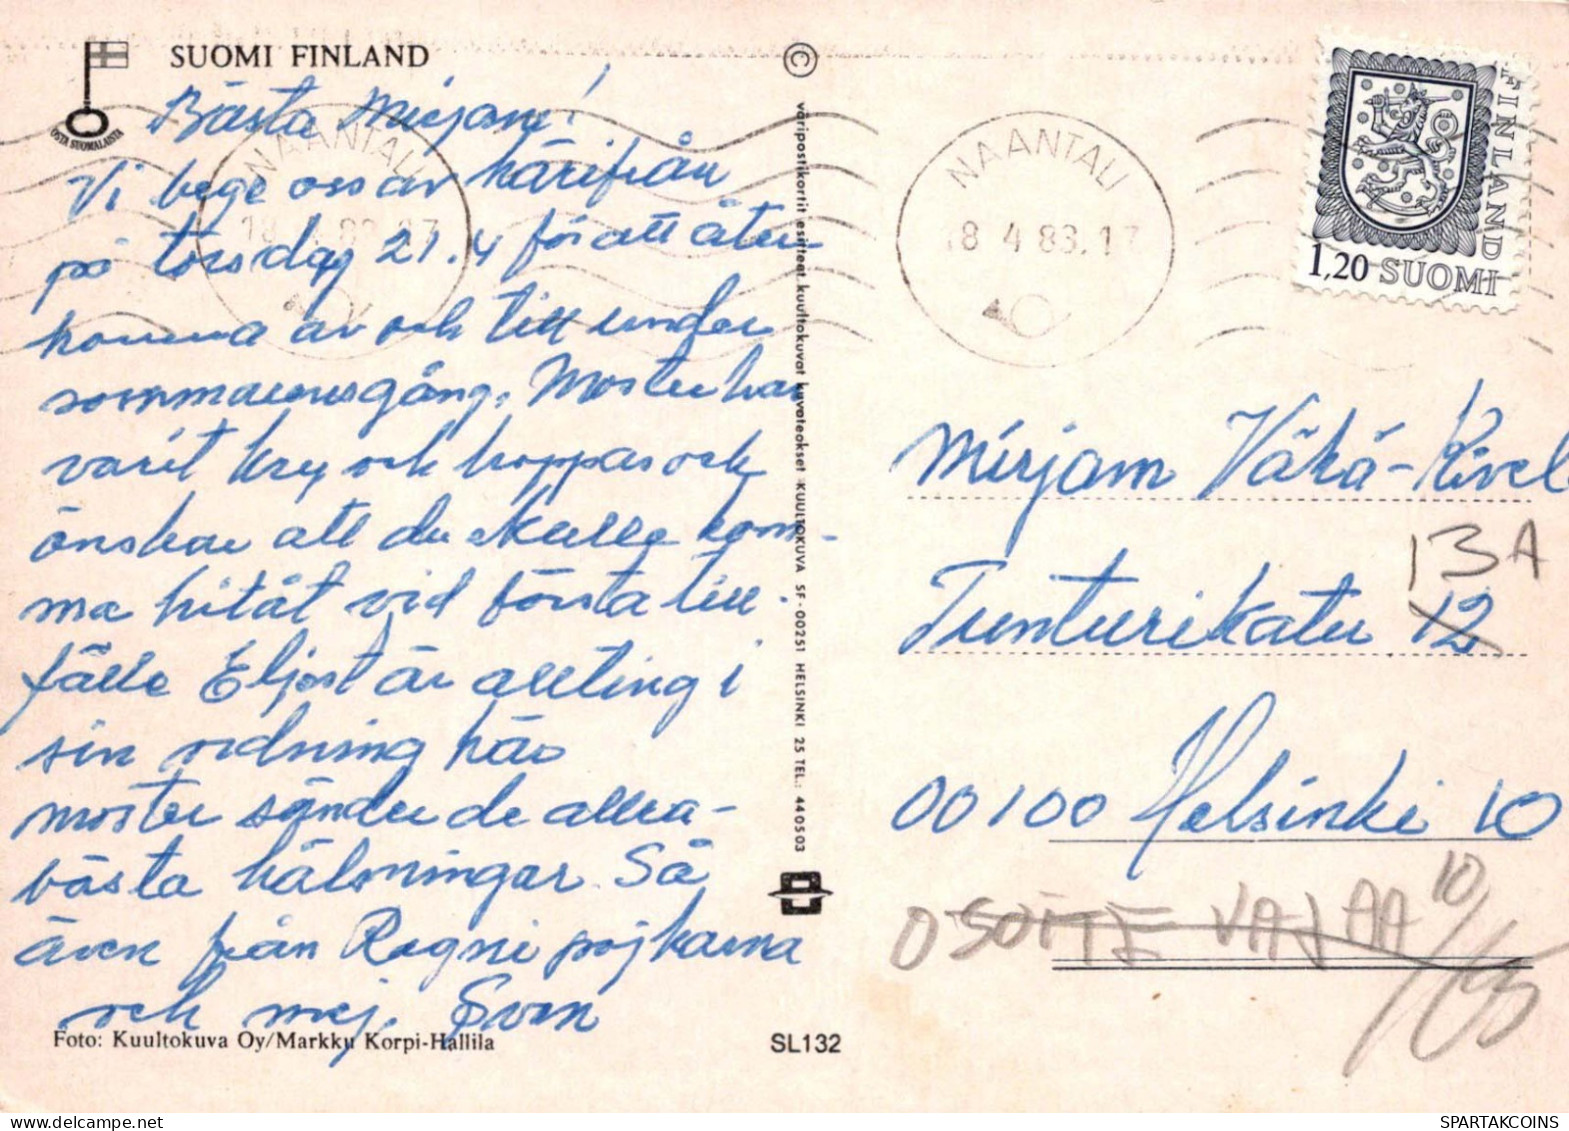 SUOMI FINLAND
OSTA SUOMALAISTA
Bästa Mirjam!
Vi bege oss av härifrån
på torsdag 21.4 för att åter-
komma av och till under
sommarens gång. Moster har
varit kry och hoppas och
önskar att du skulle kom-
ma hitåt vid första till-
fälle Eljest är allting i
sin ordning här
moster sänder de allra-
bästa hälsningar. Så
även från Ragni pojkarna
och mej. Sven
Foto: Kuultokuva Oy/Markku Korpi-Hallila
SL132
©
väripostikortit esitteet kuultokuvat kuvateokset KUULTOKUVA SF-00251 HELSINKI 25 TEL.: 440503
NAANTALI
18.4.83.17
NAANTALI
18 4 83.17
FINLAND
1,20 SUOMI
Mirjam Vähä-Kivel
13 A
Tunturikatu 12
00100 Helsinki 10
OSOITE VAJAA 10/
SPARTAKCOINS